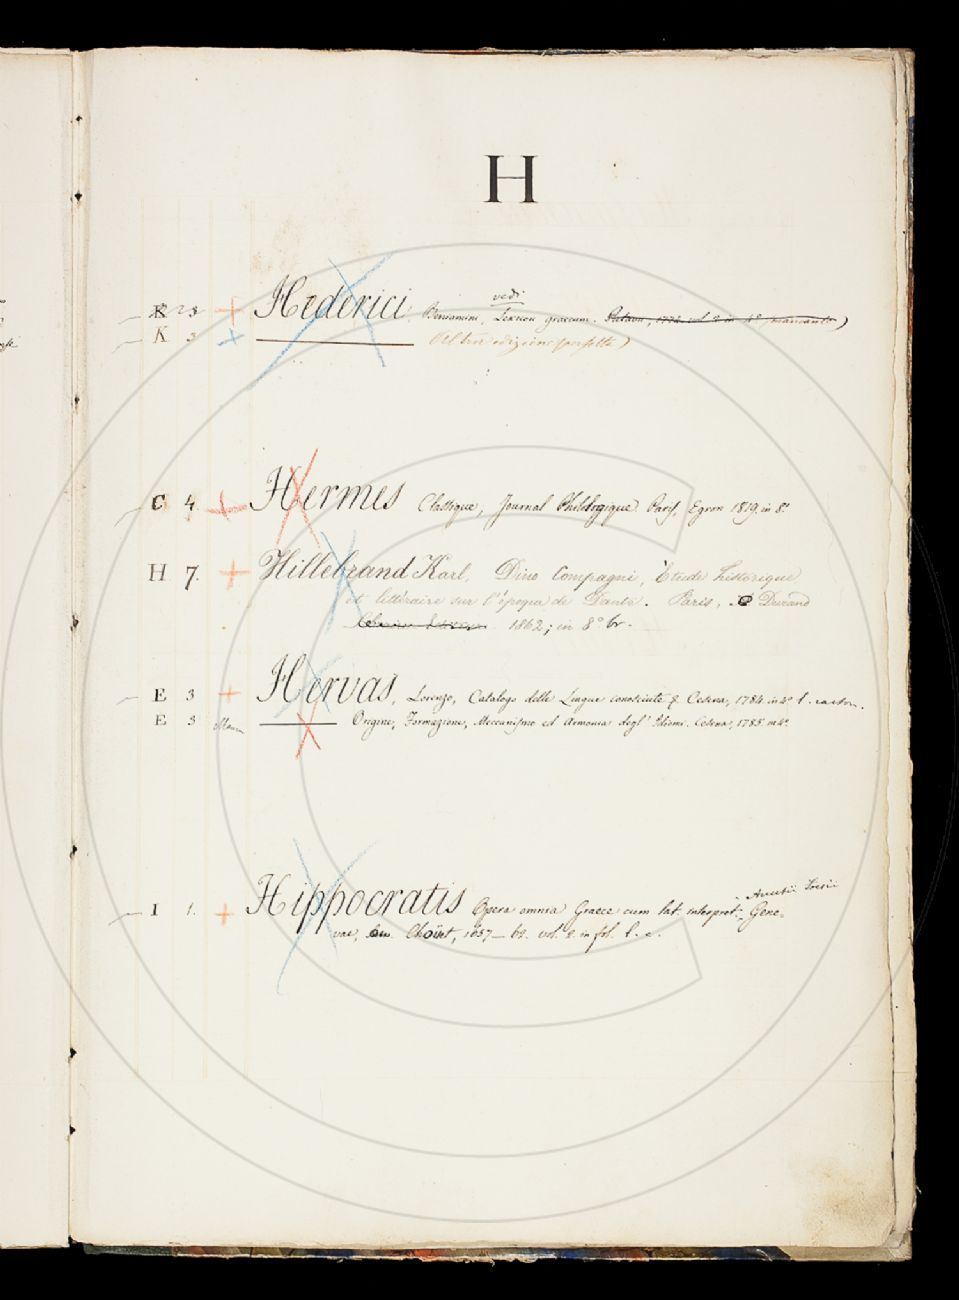 H
vedi
K 3 Hederici Beniamini, Lexicon graecum. Patavii, 1772 vol 2 in 4° (mancante)
K 3 Altra edizione (perfetta)
C 4 Hermes Classique, Journal Philologique Paris, Egron 1819. in 8°
H 7. Hillebrand Karl, Dino Compagni, Etude historique
et littéraire sur l'époque de Dante. Paris, Durand
1862; in 8° br.
E 3 Hervas, Lorenzo, Catalogo delle Lingue conosciute & Cesena, 1784 in 4° l. carton.
E 3 Manca Origine, Formazione, Meccanismo ed Armonia degl' Idiomi. Cesena, 1785 in 4°
Anutii Foesii
I 1. Hippocratis Opera omnia Graece cum lat. interpret. Gene-
vae, Chouet, 1657-62. vol. 2 in fol. l. c.